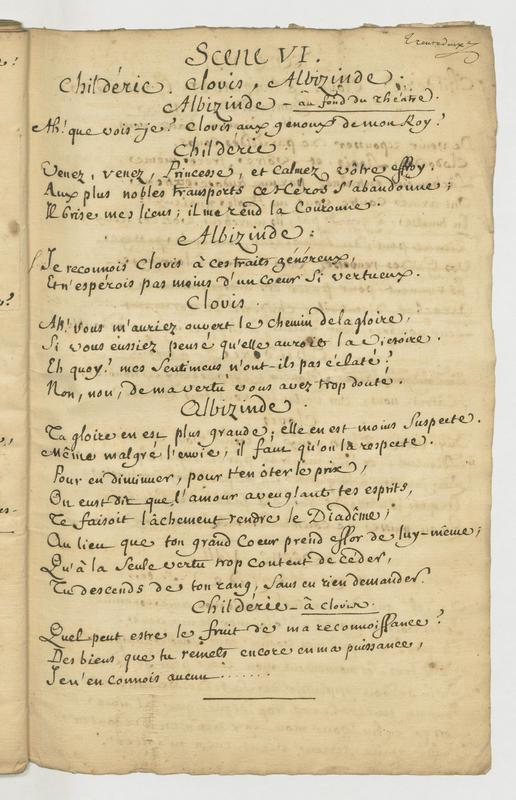 Trentedeux
Scene VI.
Childéric. Clovis, Albizinde.
Albizinde - au fond du théatre.
Ah! que vois-je? Clovis aux genoux de mon Roy?
Childéric.
Venez, venez, Princesse, et calmez vôtre effroy.
Aux plus nobles transports ce Héros s'abandonne;
Il brise mes liens; il me rend la Couronne.
Albizinde:
Je reconnois Clovis à ces traits généreux,
Et n'espérois pas moins d'un Coeur si vertueux.
Clovis.
Ah! vous m'auriez ouvert le chemin de la gloire,
Si vous eussiez pensé qu'elle auroit la victoire.
Eh quoy? mes Sentimens n'ont-ils pas éclaté?
Non, non, de ma vertu vous avez trop douté.
Albizinde.
Ta gloire en est plus grande; elle en est moins suspecte.
Même malgré l'envie, il faut qu'on la respecte.
Pour en diminuer, pour t'en ôter le prix,
On eust dit que l'amour aveuglant tes esprits,
Te faisoit lâchement rendre le Diadême;
Au lieu que ton grand Coeur prend essor de luy-même;
Qu'à la seule vertu trop content de céder,
Tu descends de ton rang, sans en rien demander.
Childéric - à Clovis.
Quel peut estre le fruit de ma reconnoissance?
Des biens que tu remets encore en ma puissance,
Je n'en connois aucun.......